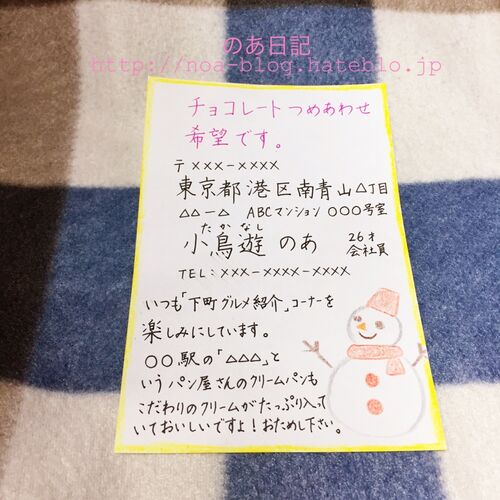 のあ日記
http://noa-blog.hateblo.jp
チョコレートつめあわせ
希望です。
〒×××-××××
東京都港区南青山△丁目
△△-△ ABCマンション ○○○号室
たかなし
小鳥遊 のあ 26才
会社員
TEL:×××-××××-××××
いつも「下町グルメ紹介」コーナーを
楽しみにしています。
○○駅の「△△△」と
いうパン屋さんのクリームパンも
こだわりのクリームがたっぷり入って
いておいしいですよ!おためし下さい。